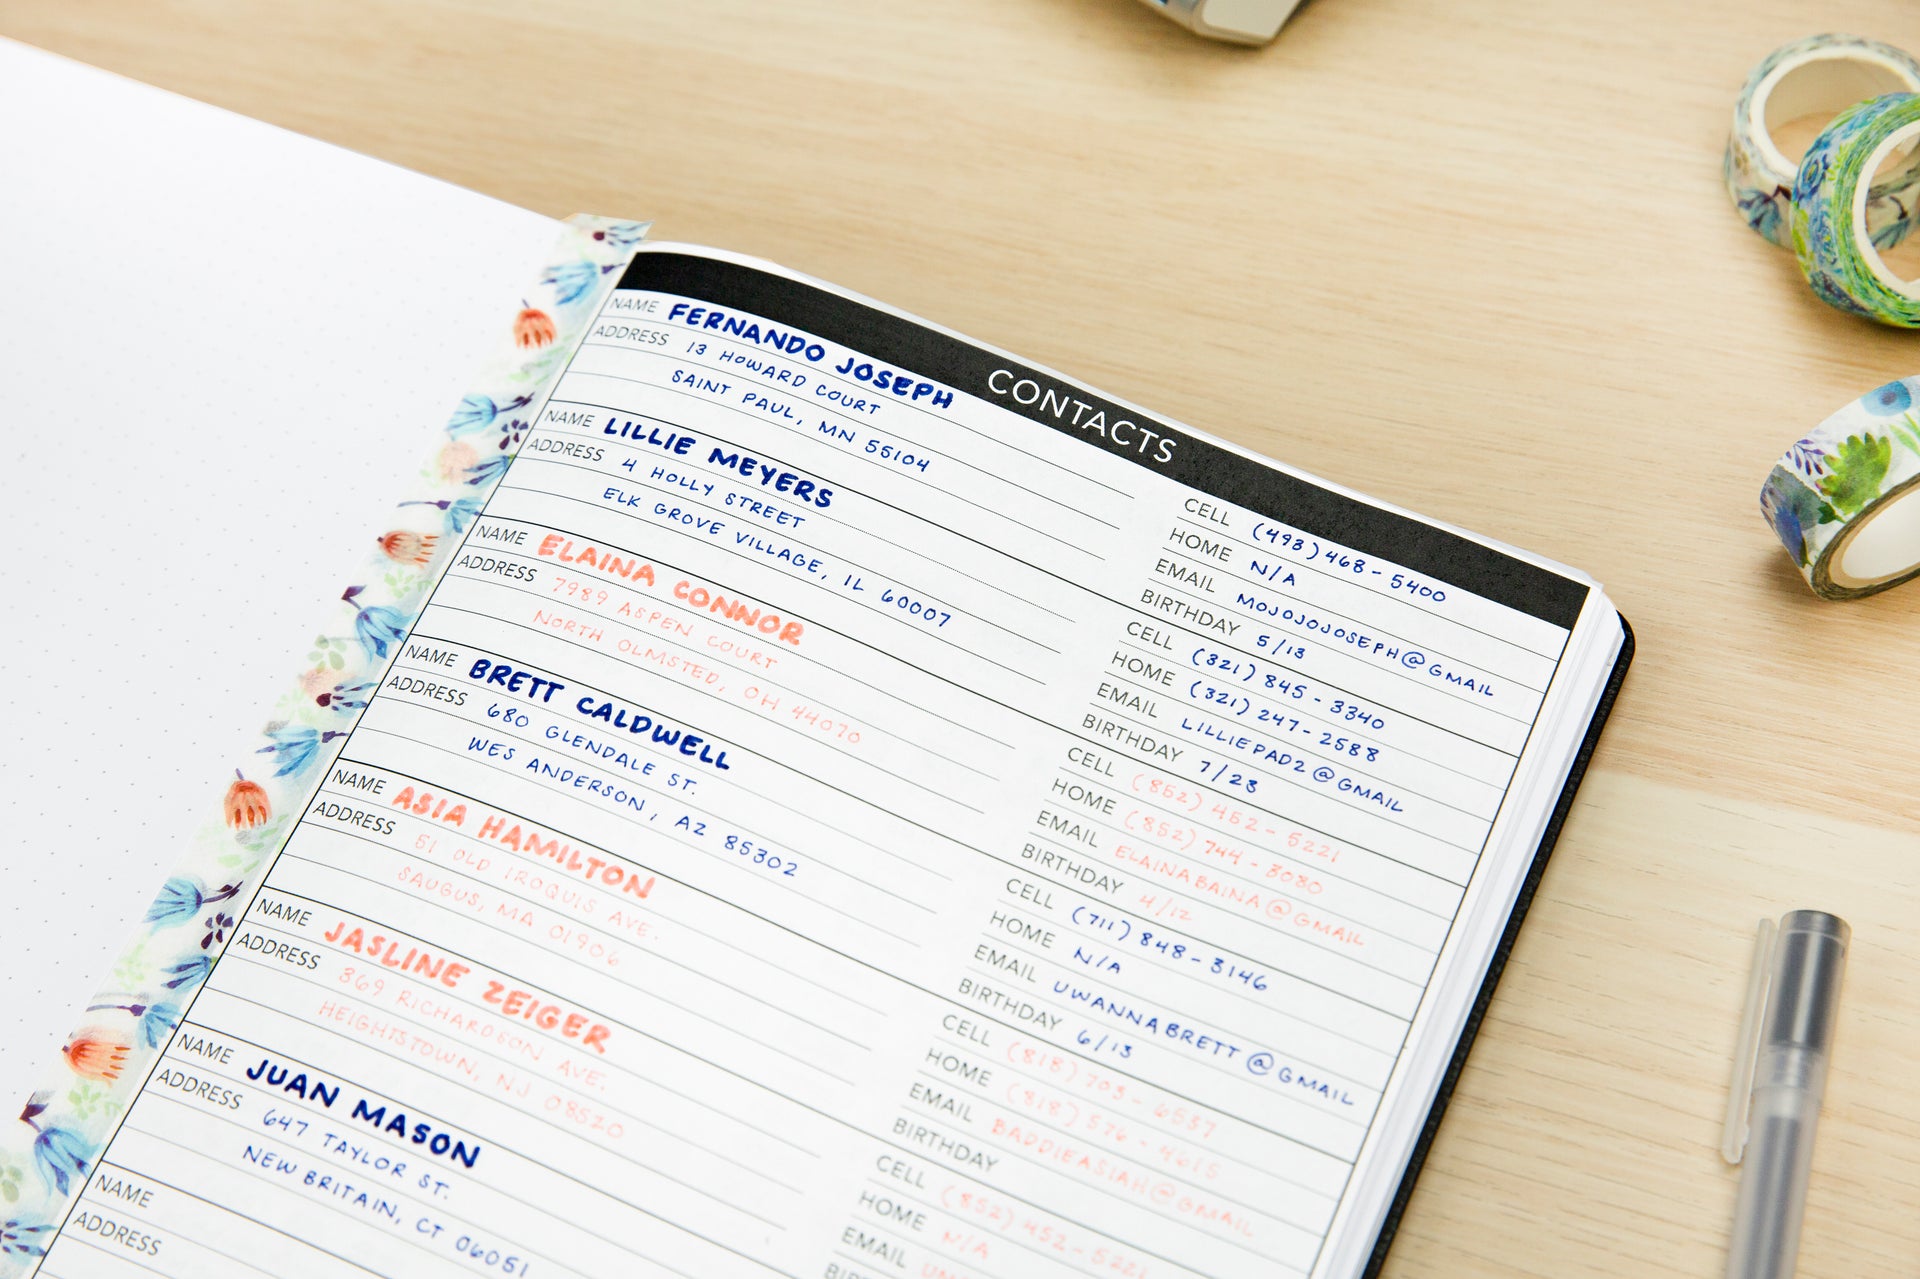 CONTACTS
NAME FERNANDO JOSEPH
ADDRESS 13 HOWARD COURT
SAINT PAUL, MN 55104
CELL (493) 468-5400
HOME N/A
EMAIL MOJOJOJOSEPH@GMAIL
BIRTHDAY 5/13
NAME LILLIE MEYERS
ADDRESS 4 HOLLY STREET
ELK GROVE VILLAGE, IL 60007
CELL (321) 845-3340
HOME (321) 247-2588
EMAIL LILLIEPAD2@GMAIL
BIRTHDAY 7/23
NAME ELAINA CONNOR
ADDRESS 7989 ASPEN COURT
NORTH OLMSTED, OH 44070
CELL (852) 452-5221
HOME (852) 744-8080
EMAIL ELAINABAINA@GMAIL
BIRTHDAY 4/12
NAME BRETT CALDWELL
ADDRESS 680 GLENDALE ST.
WES ANDERSON, AZ 85302
CELL (711) 848-3146
HOME N/A
EMAIL UWANNABRETT@GMAIL
BIRTHDAY 6/13
NAME ASIA HAMILTON
ADDRESS 51 OLD IROQUIS AVE.
SAUGUS, MA 01906
CELL (818) 703-6537
HOME (818) 576-4615
EMAIL BADDIEASIAH@GMAIL
BIRTHDAY
NAME JASLINE ZEIGER
ADDRESS 369 RICHARDSON AVE.
HEIGHTSTOWN, NJ 08520
CELL (852) 452-5221
HOME N/A
EMAIL
NAME JUAN MASON
ADDRESS 647 TAYLOR ST.
NEW BRITAIN, CT 06051
NAME
ADDRESS